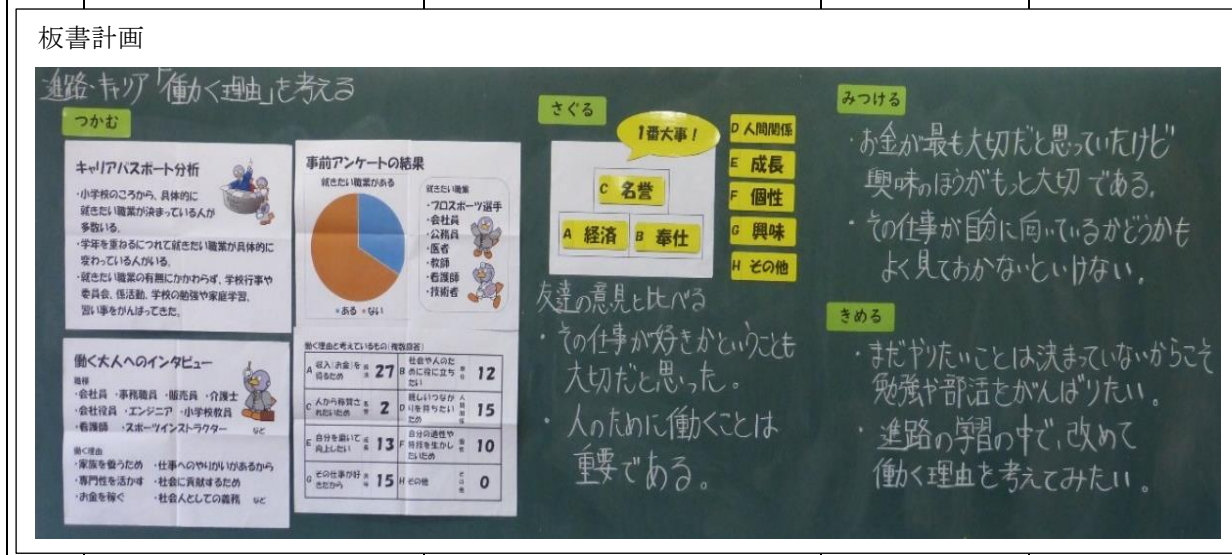 板書計画
進路・キャリア「働く理由」を考える
つかむ
キャリアパスポート分析
・小学校のころから、具体的に
就きたい職業が決まっている人が
多数いる。
・学年を重ねるにつれて就きたい職業が具体的に
変わっている人がいる。
・就きたい職業の有無にかかわらず、学校行事や
委員会、係活動、学校の勉強や家庭学習、
習い事をがんばってきた。
働く大人へのインタビュー
職種
・会社員 ・事務職員 ・販売員 ・介護士
・会社役員 ・エンジニア ・小学校教員
・看護師 ・スポーツインストラクター など
働く理由
・家族を養うため ・仕事へのやりがいがあるから
・専門性を活かす ・社会に貢献するため
・お金を稼ぐ ・社会人としての義務 など
事前アンケートの結果
就きたい職業がある
・ある ・ない
就きたい職業
・プロスポーツ選手
・会社員
・公務員
・医者
・教師
・看護師
・技術者
働く理由と考えているもの(複数回答)
A 収入(お金)を得るため 経済 27
B 社会や人のために役に立ちたい 奉仕 12
C 人から称賛されたいため 名誉 2
D 親しいつながりを持ちたいため 人間関係 15
E 自分を磨いて向上したい 成長 13
F 自分の適性や特技を生かしたいため 個性 10
G その仕事が好きだから 興味 15
H その他 その他 0
さぐる
1番大事!
C 名誉
A 経済 B 奉仕
D 人間関係
E 成長
F 個性
G 興味
H その他
友達の意見と比べる
・その仕事が好きかということも
大切だと思った。
・人のために働くことは
重要である。
みつける
・お金が最も大切だと思っていたけど
興味のほうがもっと大切である。
・その仕事が自分に向いているかどうかも
よく見ておかないといけない。
きめる
・まだやりたいことは決まっていないからこそ
勉強や部活をがんばりたい。
・進路の学習の中で、改めて
働く理由を考えてみたい。